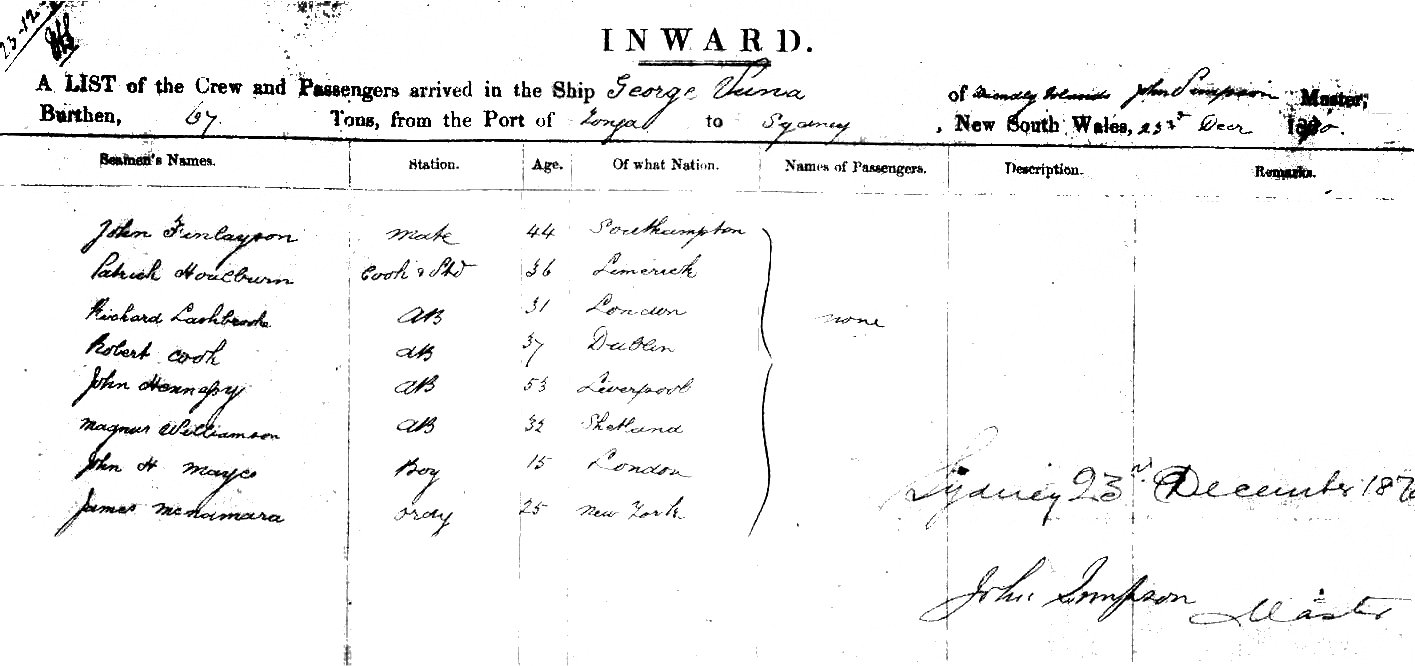 23-12
INWARD.
A LIST of the Crew and Passengers arrived in the Ship George Vuna of Friendly Islands John Simpson Master,
Burthen, 67 Tons, from the Port of Tonga to Sydney, New South Wales, 23rd Decr 1870.
Seamen's Names. Station. Age. Of what Nation. Names of Passengers. Description. Remarks.
John Finlayson mate 44 Southampton
Patrick Cook & Std 36 Limerick
Richard Lashbrooke AB 31 London none
Robert Cook AB 37 Dublin
John Hennessy AB 53 Liverpool
Magnus Williamson AB 32 Shetland
John H Mayes Boy 15 London
James McNamara ordy 25 New York
Sydney 23rd December 187
John Simpson Master